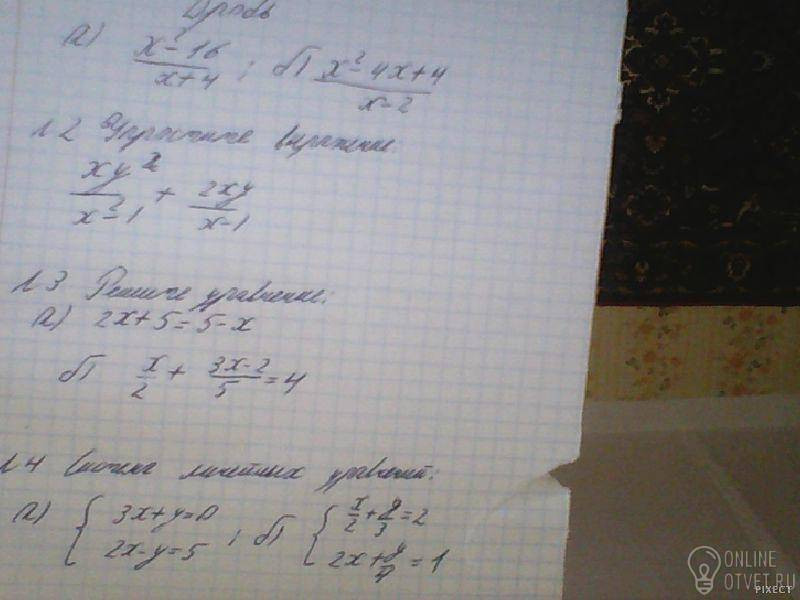 Дробь
а) x²-16/x+4 ; б) x²-4x+4/x-2
1.2 Упростите выражение
xy²/x²-1 + 2xy/x-1
1.3 Решите уравнение:
а) 2x+5=5-x
б) x/2 + 3x-2/5 = 4
1.4 линейных уравнений:
а) { 3x+y=0 2x-y=5 ; б) { x/2+y/3=2 2x+y/4=1
ONLINE
OTVET.RU
PIXECT